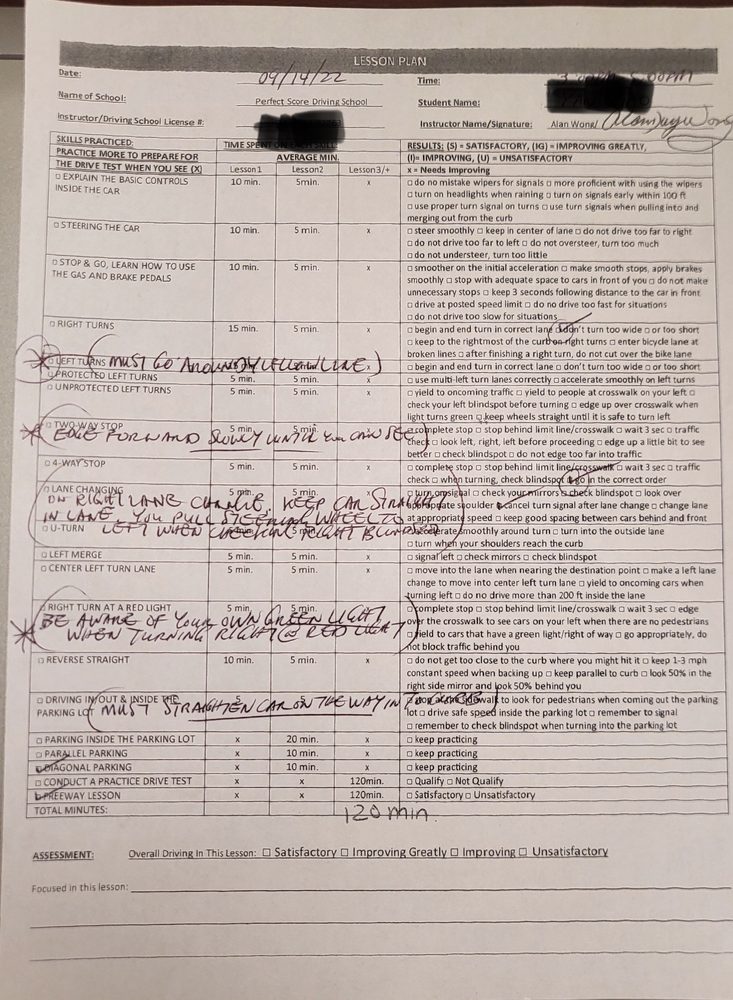 LESSON PLAN
Date: 09/14/22 Time: 3
Name of School: Perfect Score Driving School Student Name:
Instructor/Driving School License #: Instructor Name/Signature: Alan Wong/
SKILLS PRACTICED: TIME SPENT ON EACH SKILL RESULTS: (S) = SATISFACTORY, (IG) = IMPROVING GREATLY,
PRACTICE MORE TO PREPARE FOR AVERAGE MIN. (I)= IMPROVING, (U) = UNSATISFACTORY
THE DRIVE TEST WHEN YOU SEE (X) Lesson1 Lesson2 Lesson3/+ x = Needs Improving
□ EXPLAIN THE BASIC CONTROLS 10 min. 5min. x □ do no mistake wipers for signals □ more proficient with using the wipers
INSIDE THE CAR □ turn on headlights when raining □ turn on signals early within 100 ft
□ use proper turn signal on turns □ use turn signals when pulling into and
merging out from the curb
□ STEERING THE CAR 10 min. 5 min. x □ steer smoothly □ keep in center of lane □ do not drive too far to right
□ do not drive too far to left □ do not oversteer, turn too much
□ do not understeer, turn too little
□ STOP & GO, LEARN HOW TO USE 10 min. 5 min. x □ smoother on the initial acceleration □ make smooth stops, apply brakes
THE GAS AND BRAKE PEDALS smoothly □ stop with adequate space to cars in front of you □ do not make
unnecessary stops □ keep 3 seconds following distance to the car in front
□ drive at posted speed limit □ do no drive too fast for situations
□ do not drive too slow for situations
□ RIGHT TURNS 15 min. 5 min. x □ begin and end turn in correct lane □ don't turn too wide □ or too short
□ keep to the rightmost of the curb on right turns □ enter bicycle lane at
broken lines □ after finishing a right turn, do not cut over the bike lane
□ LEFT TURNS (MUST GO AROUND YELLOW LINE) x □ begin and end turn in correct lane □ don't turn too wide □ or too short
□ PROTECTED LEFT TURNS 5 min. 5 min. x □ use multi-left turn lanes correctly □ accelerate smoothly on left turns
□ UNPROTECTED LEFT TURNS 5 min. 5 min. x □ yield to oncoming traffic □ yield to people at crosswalk on your left □
check your left blindspot before turning □ edge up over crosswalk when
light turns green □ keep wheels straight until it is safe to turn left
□ TWO-WAY STOP 5 min. 5 min. x □ complete stop □ stop behind limit line/crosswalk □ wait 3 sec □ traffic
EDGE FORWARD SLOWLY UNTIL YOU CAN SEE check □ look left, right, left before proceeding □ edge up a little bit to see
better □ check blindspot □ do not edge too far into traffic
□ 4-WAY STOP 5 min. 5 min. x □ complete stop □ stop behind limit line/crosswalk □ wait 3 sec □ traffic
check □ when turning, check blindspot □ go in the correct order
□ LANE CHANGING 5 min. 5 min. □ turn on signal □ check your mirrors □ check blindspot □ look over
ON RIGHT LANE CHANGE, KEEP CAR STRAIGHT appropriate shoulder □ cancel turn signal after lane change □ change lane
IN LANE. YOU PULL STEERING WHEEL TO at appropriate speed □ keep good spacing between cars behind and front
□ U-TURN LEFT WHEN CHECKING RIGHT BLINDSPOT □ accelerate smoothly around turn □ turn into the outside lane
□ turn when your shoulders reach the curb
□ LEFT MERGE 5 min. 5 min. x □ signal left □ check mirrors □ check blindspot
□ CENTER LEFT TURN LANE 5 min. 5 min. x □ move into the lane when nearing the destination point □ make a left lane
change to move into center left turn lane □ yield to oncoming cars when
turning left □ do no drive more than 200 feet inside the lane
□ RIGHT TURN AT A RED LIGHT 5 min. 5 min. □ complete stop □ stop behind limit line/crosswalk □ wait 3 sec □ edge
BE AWARE OF YOUR OWN GREEN LIGHT over the crosswalk to see cars on your left when there are no pedestrians
WHEN TURNING RIGHT @ RED LIGHT □ yield to cars that have a green light/right of way □ go appropriately, do
not block traffic behind you
□ REVERSE STRAIGHT 10 min. 5 min. x □ do not get too close to the curb where you might hit it □ keep 1-3 mph
constant speed when backing up □ keep parallel to curb □ look 50% in the
right side mirror and look 50% behind you
□ DRIVING IN/OUT & INSIDE THE 5 5 □ stop at the sidewalk to look for pedestrians when coming out the parking
PARKING LOT (MUST STRAIGHTEN CAR ON THE WAY IN lot □ drive safe speed inside the parking lot □ remember to signal
□ remember to check blindspot when turning into the parking lot
□ PARKING INSIDE THE PARKING LOT x 20 min. x □ keep practicing
□ PARALLEL PARKING x 10 min. x □ keep practicing
□ DIAGONAL PARKING x 10 min. x □ keep practicing
□ CONDUCT A PRACTICE DRIVE TEST x x 120min. □ Qualify □ Not Qualify
□ FREEWAY LESSON x x 120min. □ Satisfactory □ Unsatisfactory
TOTAL MINUTES: 120 min.
ASSESSMENT: Overall Driving In This Lesson: □ Satisfactory □ Improving Greatly □ Improving □ Unsatisfactory
Focused in this lesson: